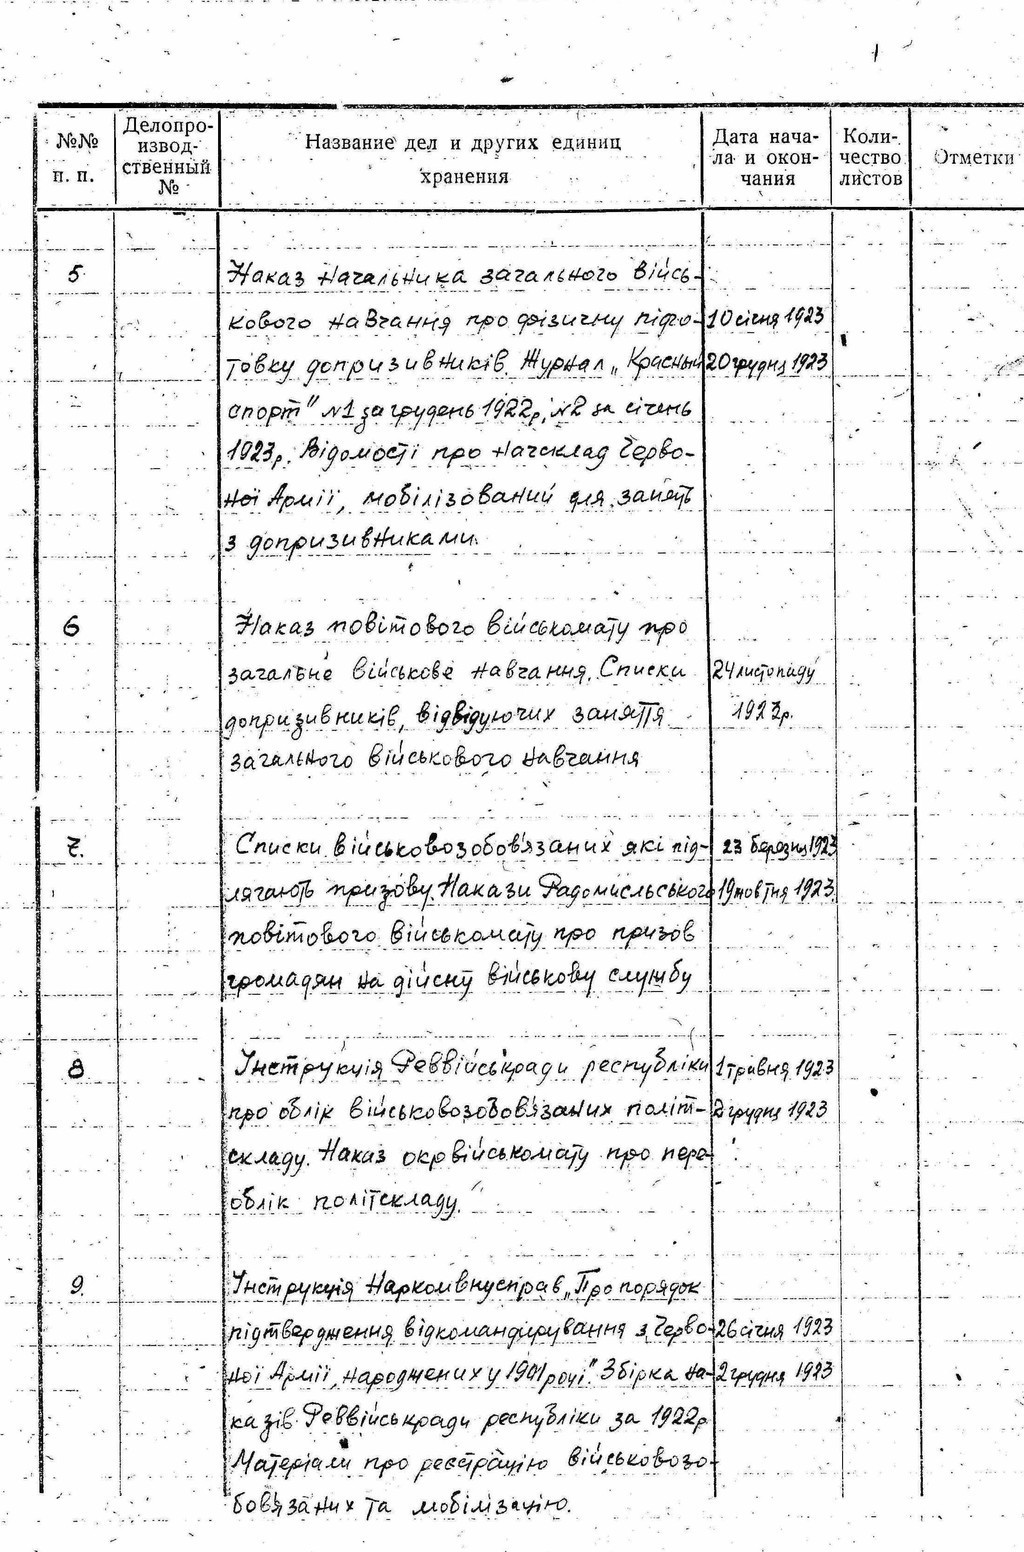 №№ п. п.
Делопро-
извод-
ственный
№
Название дел и других единиц
хранения
Дата нача-
ла и окон-
чания
Коли-
чество
листов
Отметки
5
Наказ начальника загального війсь-
кового навчання про фізичну підго- 10 січня 1923
товку допризивників. Журнал „Красный 20 грудня 1923
спорт" №1 за грудень 1922р, №2 за січень
1923р. Відомості про начсклад Черво-
ної Армії, мобілізований для занять
з допризивниками.
6 Наказ повітового військомату про
загальне військове навчання. Списки 24 листопаду
допризивників, відвідуючих заняття 1923р.
загального військового навчання
7. Списки військовозобов'язаних які під- 23 березня 1923
лягають призову. Накази Радомисльського 19 жовтня 1923
повітового військомату про призов
громадян на дійсну військову службу
8 Інструкція Реввійськради республіки 1 травня 1923
про облік військовозобов'язаних політ- грудня 1923
складу. Наказ окрвійськомату про пере-
облік політскладу.
9. Інструкція Наркомвнусправ „Про порядок
підтвердження відкомандирування з Черво- 26 січня 1923
ної Армії, народжених у 1901 році". Збірка на- 2 грудня 1923
казів Реввійськради республіки за 1922р
Матеріали про реєстрацію військовозо-
бов'язаних та мобілізацію.